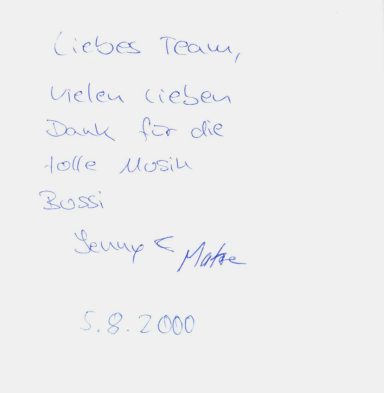 Liebes Team,
vielen lieben
Dank für die
tolle Musik
Bussi
Jenny & Matze
5.8.2000